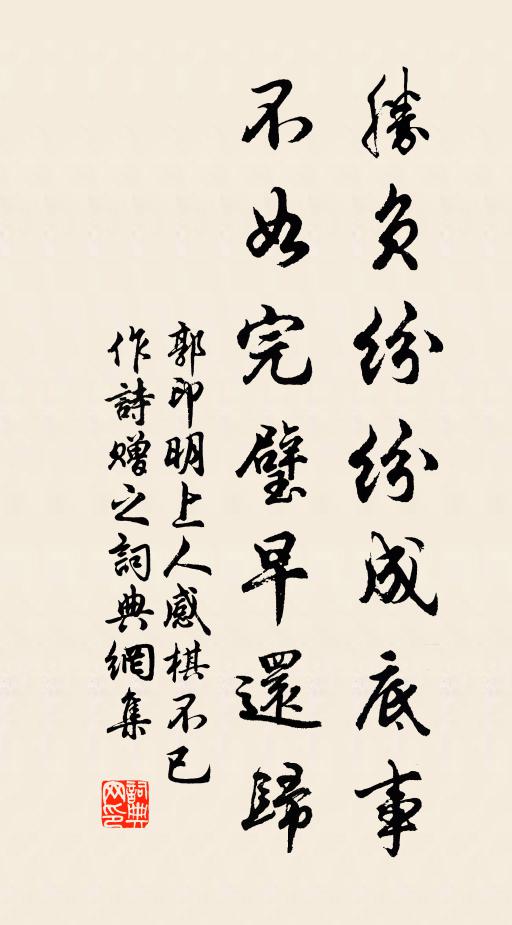 勝負紛紛成底事
不如完璧早還歸
郭印明上人感棋不已
作詩贈之詞典網集
詞典網印